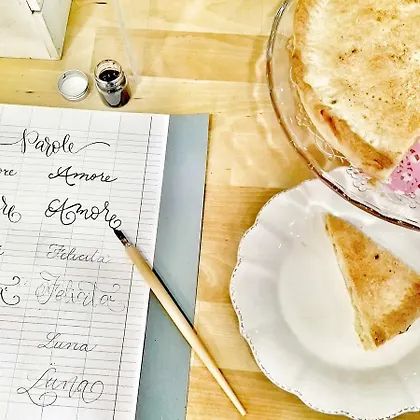 Parole
Amore
Amore
Felicita
Felicita
Luna
Luna